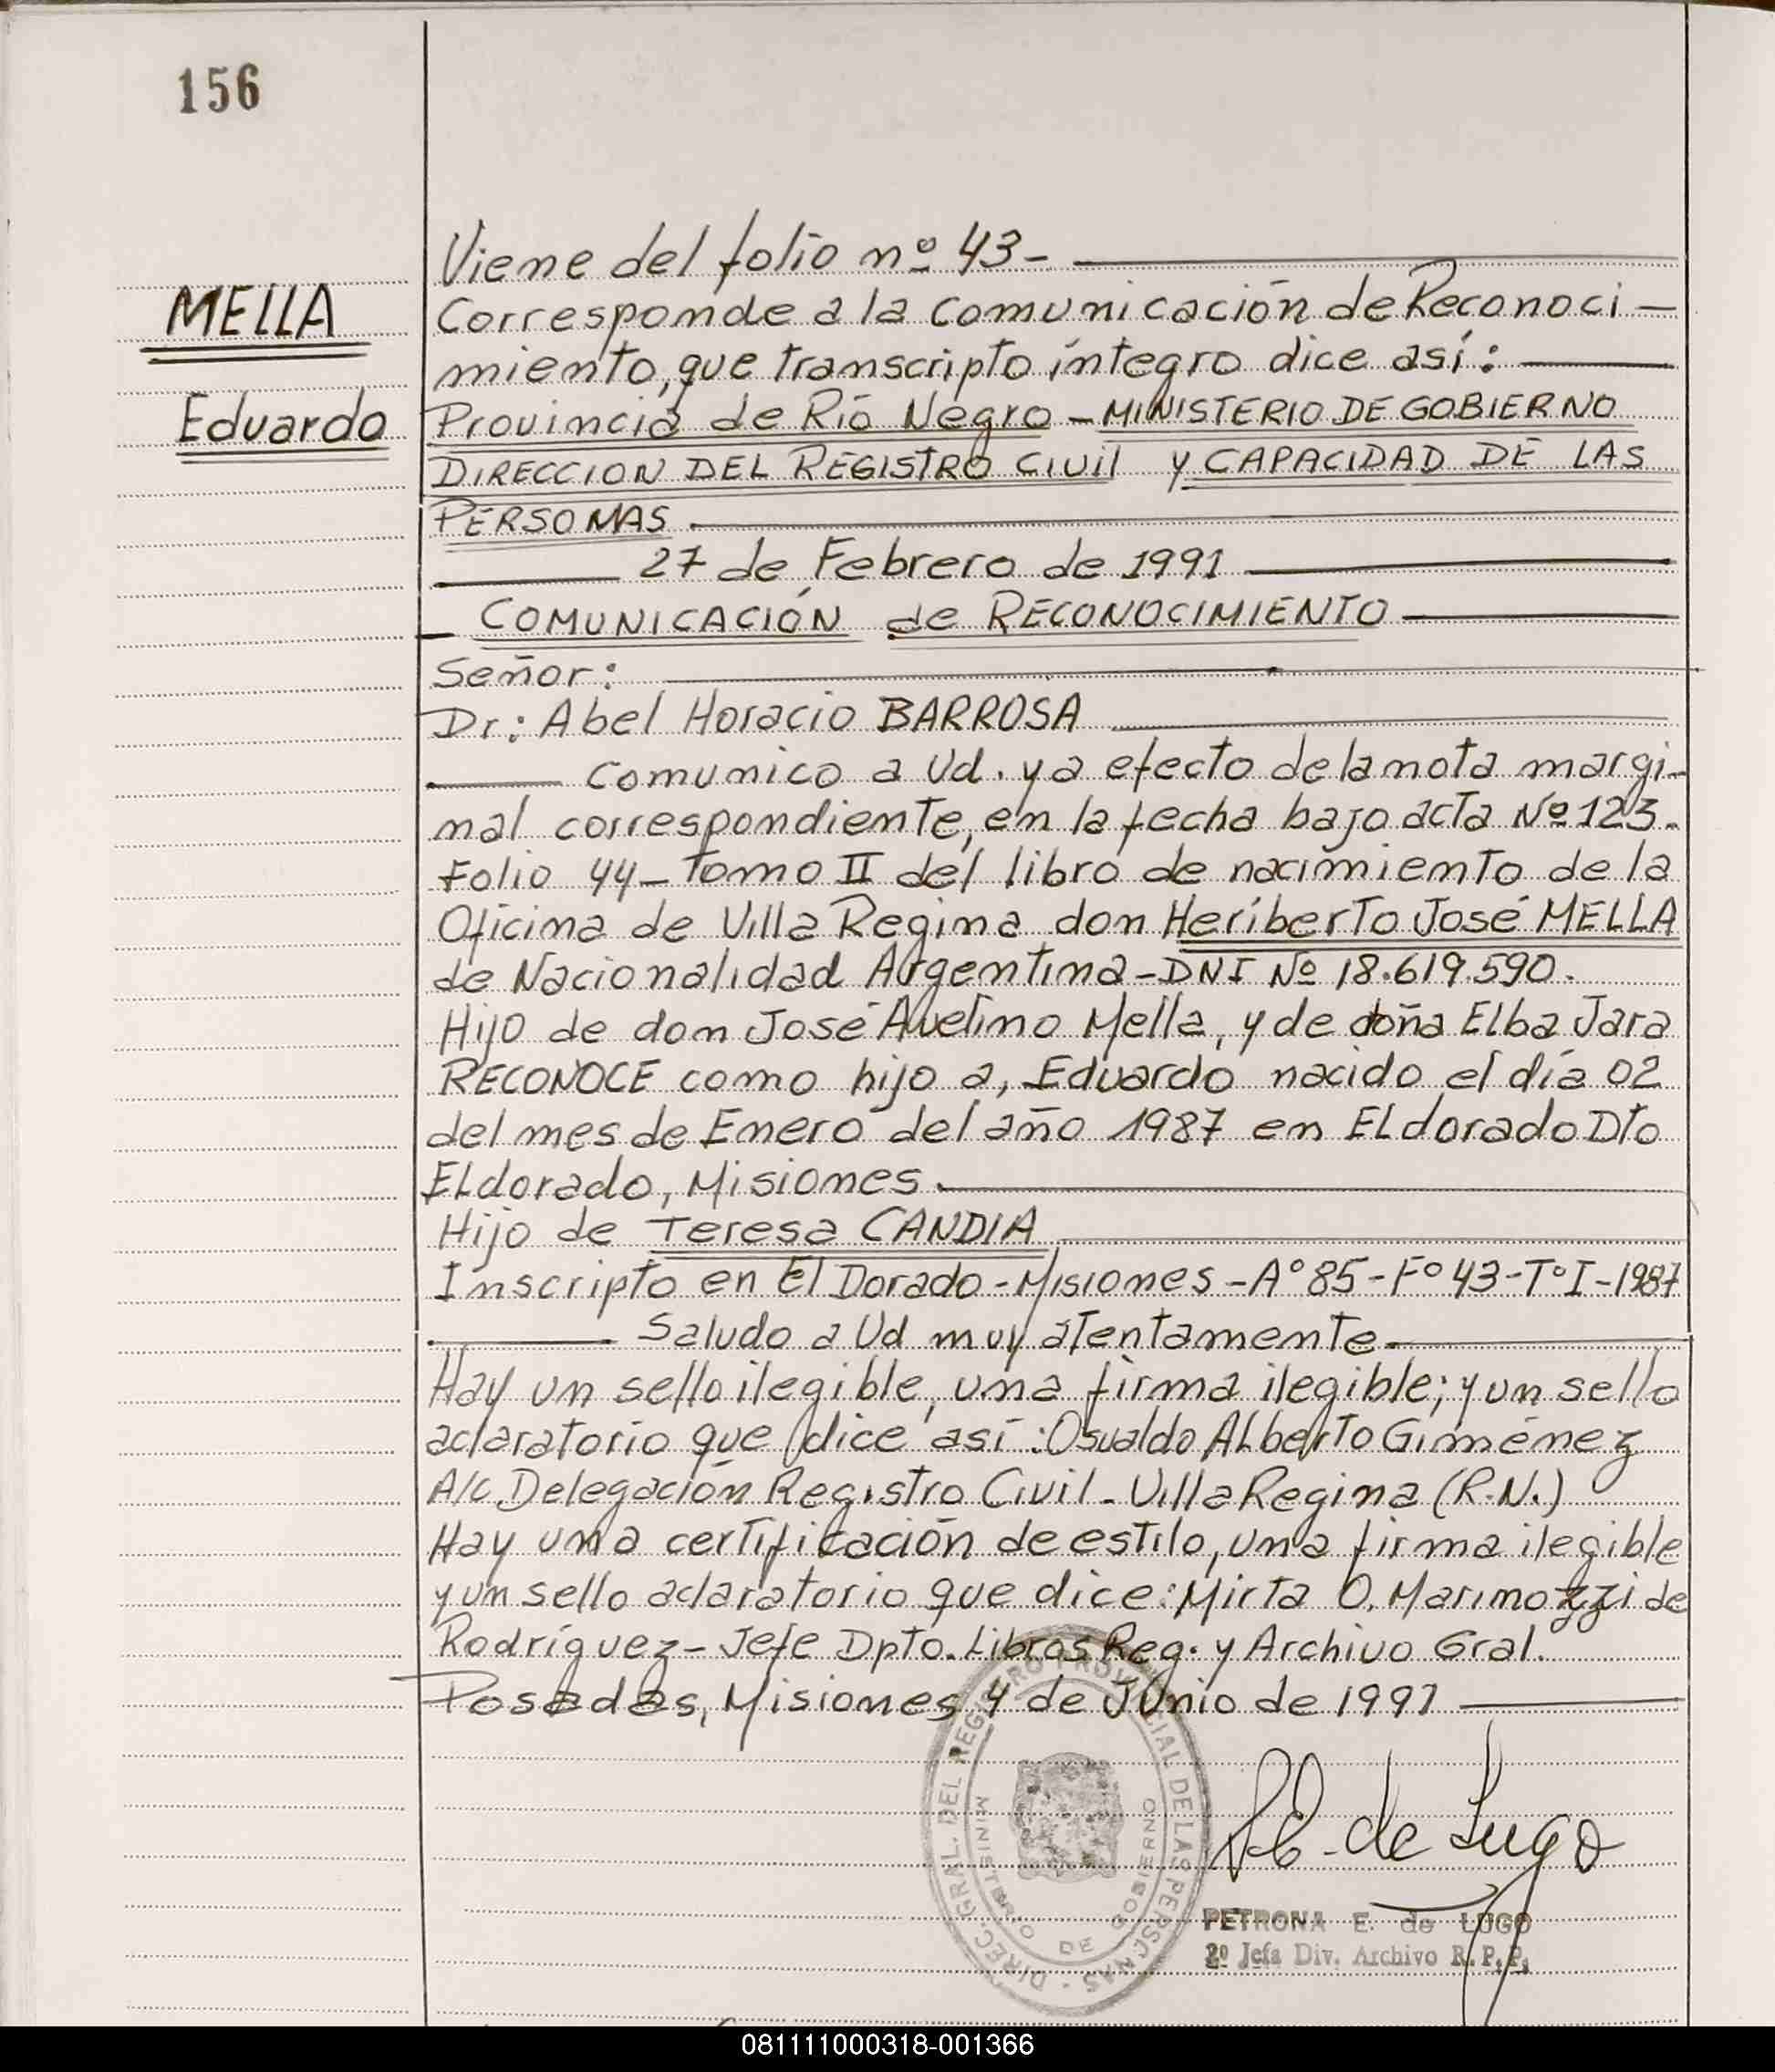 156
MELLA
Eduardo
Viene del folio nº 43-
Corresponde a la comunicación de Reconoci-
miento, que transcripto íntegro dice así:
Provincia de Río Negro - MINISTERIO DE GOBIERNO
DIRECCION DEL REGISTRO CIVIL y CAPACIDAD DE LAS
PERSONAS.
27 de Febrero de 1991
COMUNICACIÓN de RECONOCIMIENTO
Señor:
Dr: Abel Horacio BARROSA
Comunico a Ud. y a efecto de la nota margi-
nal correspondiente, en la fecha bajo acta Nº 123-
Folio 44- Tomo II del libro de nacimiento de la
Oficina de Villa Regina don Heriberto José MELLA
de Nacionalidad Argentina - DNI Nº 18.619.590.
Hijo de don José Avelino Mella, y de doña Elba Jara
RECONOCE como hijo a, Eduardo nacido el día 02
del mes de Enero del año 1987 en ELdorado Dto
ELdorado, Misiones.
Hijo de Teresa CANDIA
Inscripto en El Dorado - Misiones - Aº 85 - Fº 43 - Tº I - 1987
Saludo a Ud muy atentamente
Hay un sello ilegible, una firma ilegible; y un sello
aclaratorio que dice así: Osvaldo ALberto Giménez
A/C Delegación Registro Civil - Villa Regina (R.N.)
Hay una certificación de estilo, una firma ilegible
y un sello aclaratorio que dice: Mirta O. Marinozzi de
Rodríguez - Jefe Dpto. Libros Reg. y Archivo Gral.
Posadas, Misiones 4 de Junio de 1991
DIREC. GRAL. DEL REGISTRO PROVINCIAL DE LAS PERSONAS
MINISTERIO DE GOBIERNO
P.E. de Lugo
PETRONA E. de LUGO
2º Jefa Div. Archivo R. P. P.
081111000318-001366